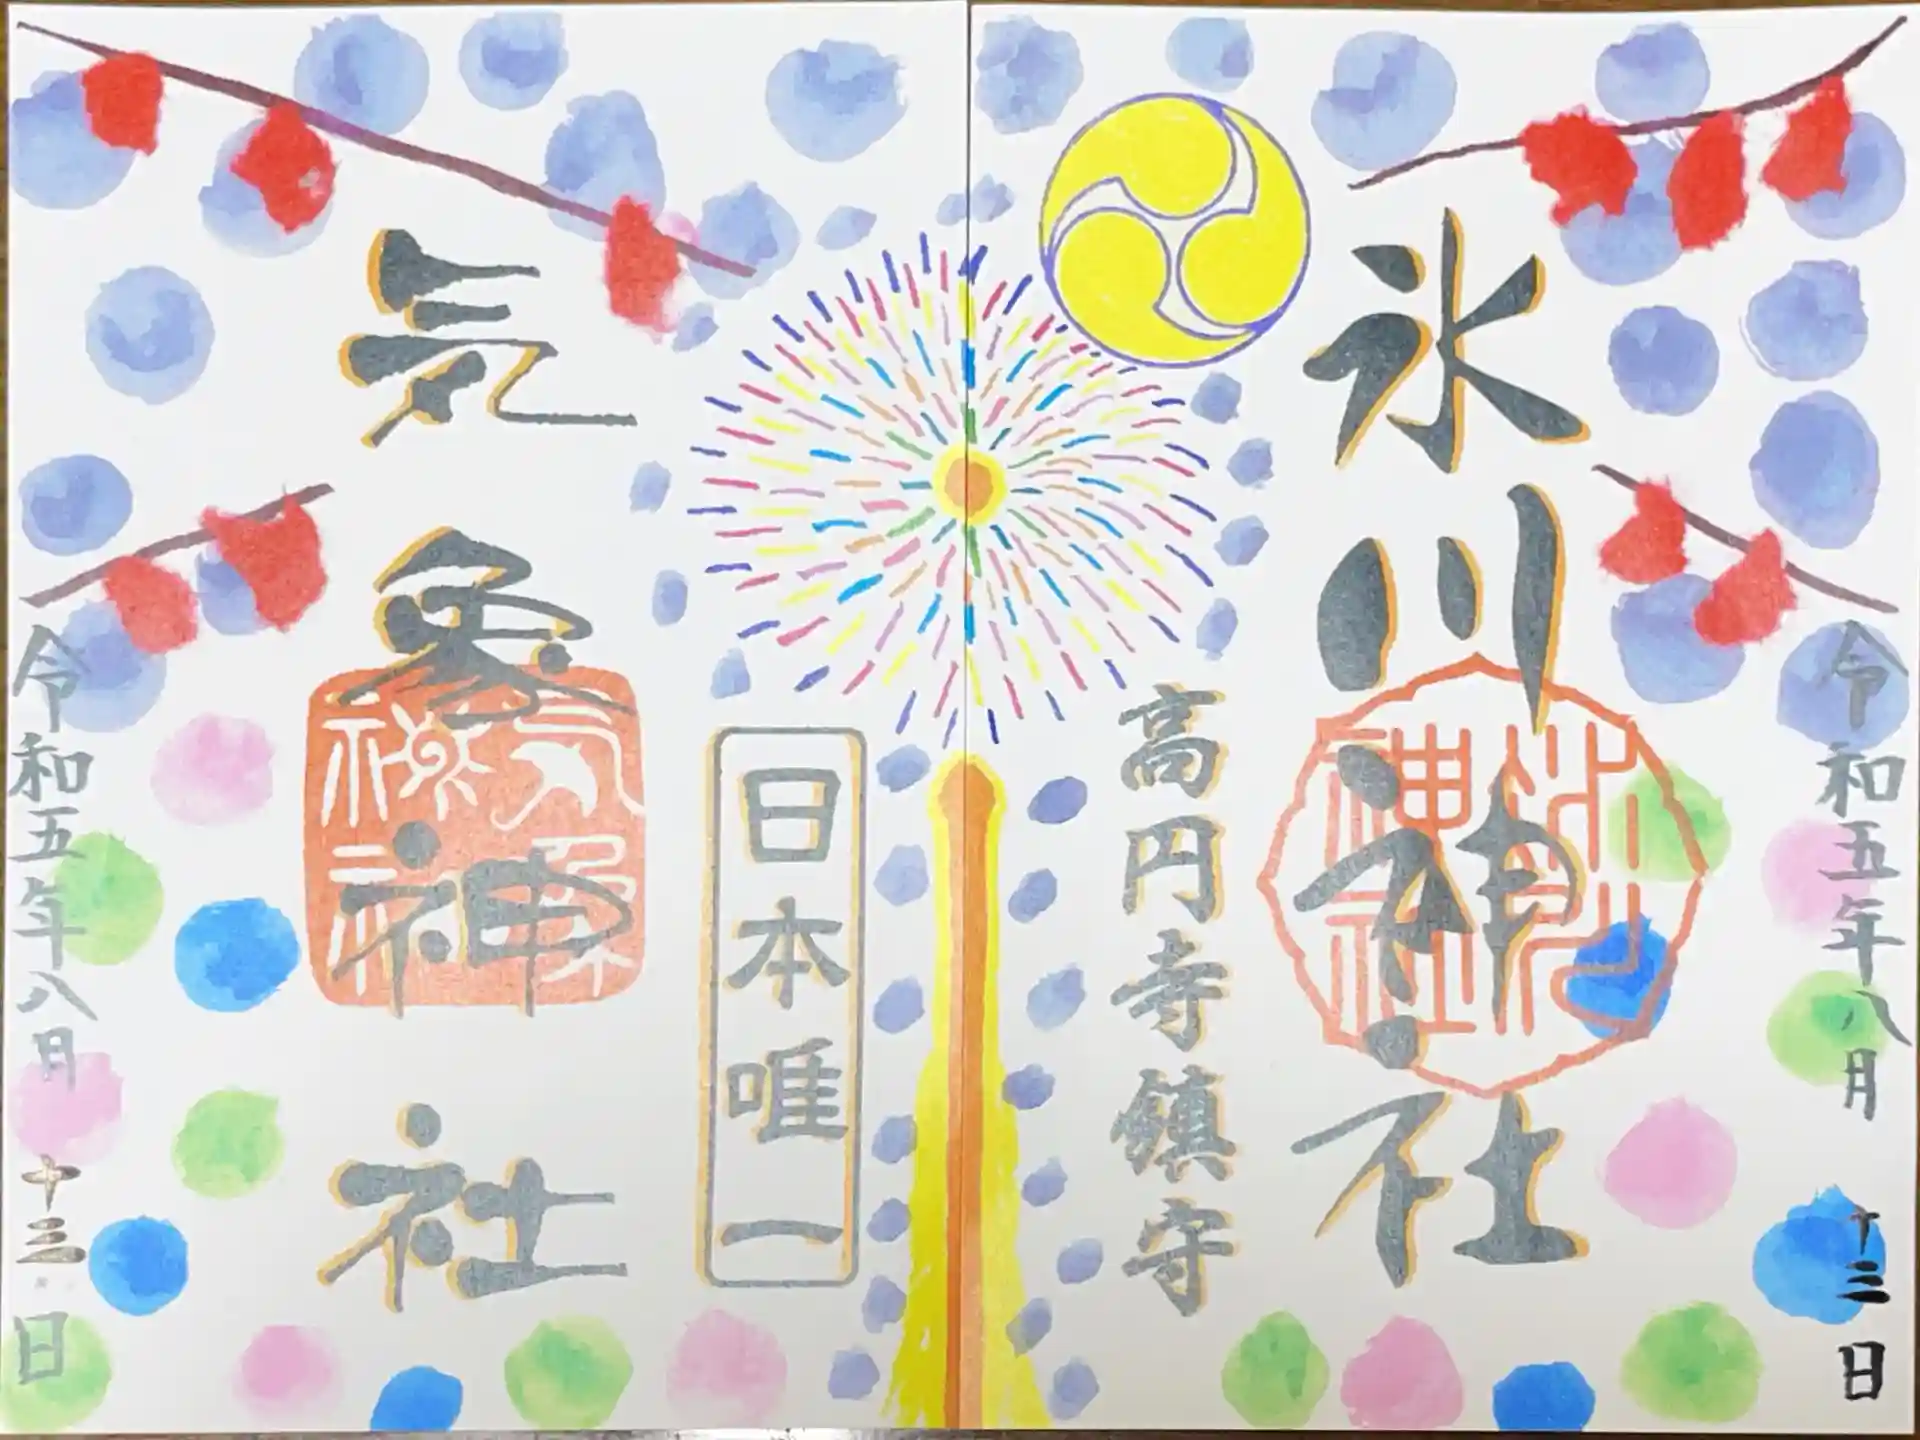 令和五年八月十三日
氷川神社
氷川神社
高円寺鎮守
日本唯一
気象神社
気象神社
令和五年八月十三日